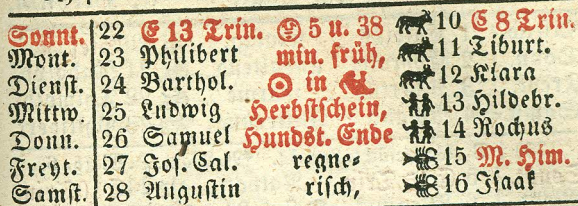 Sonnt. 22 E 13 Trin. 5 u. 38 10 E 8 Trin.
Mont. 23 Philibert min. früh, 11 Tiburt.
Dienst. 24 Barthol. in 12 Klara
Mittw. 25 Ludwig Herbstschein, 13 Hildebr.
Donn. 26 Samuel Hundst. Ende 14 Rochus
Freyt. 27 Jos. Cal. regne- 15 M. Him.
Samst. 28 Augustin risch, 16 Isaak